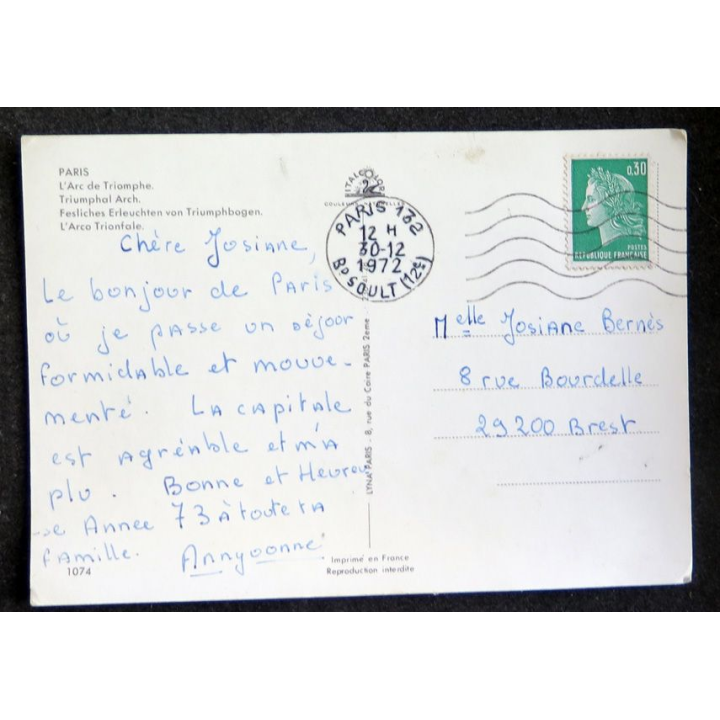 PARIS
L'Arc de Triomphe.
Triumphal Arch.
Fesliches Erleuchten von Triumphbogen.
L'Arco Trionfale.
Chère Josiane,
Le bonjour de Paris
où je passe un séjour
formidable et mouve-
menté. La capitale
est agréable et m'a
plu. Bonne et Heureu
-se Annee 73 à toute ta
famille. Annyvonne
1074
ITALCOLOR
PARIS 132
12 H
30-12
1972
BD SOULT (12E)
0,30
POSTES
REPUBLIQUE FRANÇAISE
Melle Josiane Bernès
8 rue Bourdelle
29200 Brest
LYNA PARIS - 8, rue du Caire PARIS 2eme
Imprimé en France
Reproduction interdite